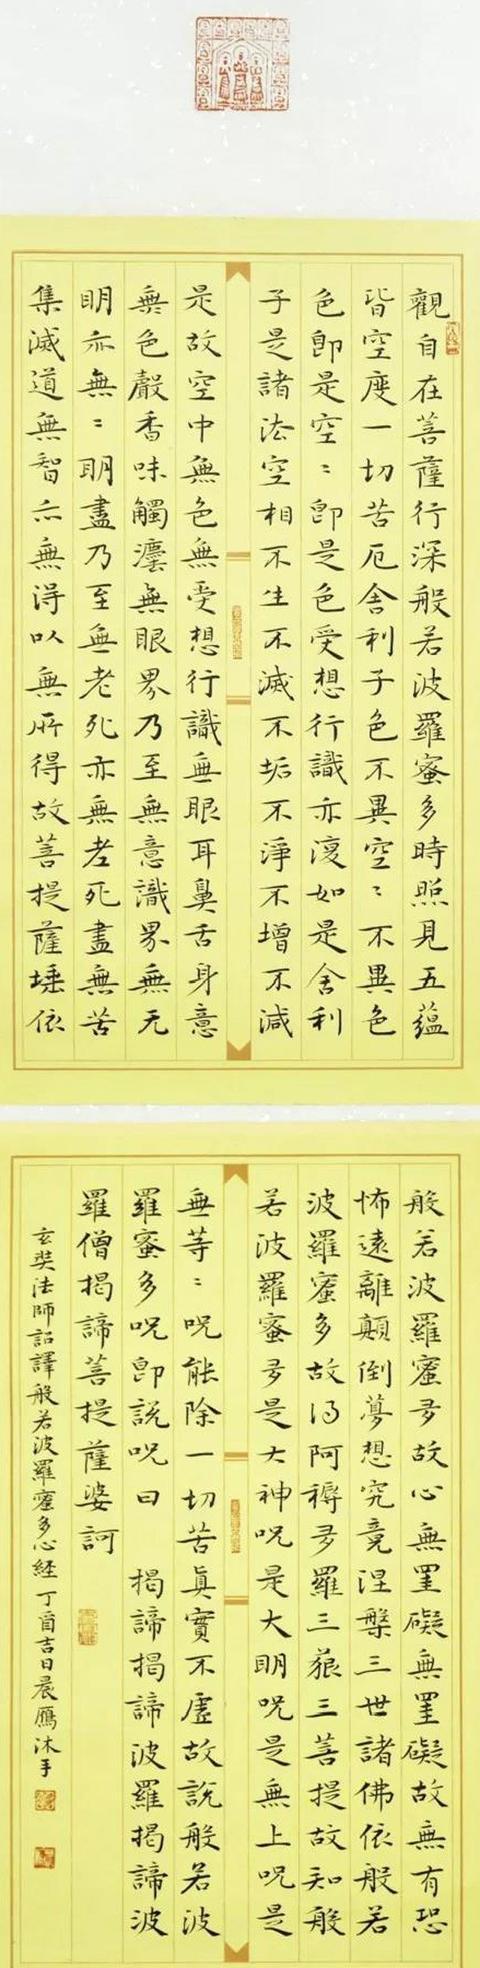 觀自在菩薩行深般若波羅蜜多時照見五蘊
皆空度一切苦厄舍利子色不異空〻不異色
色即是空〻即是色受想行識亦復如是舍利
子是諸法空相不生不滅不垢不淨不增不減
是故空中無色無受想行識無眼耳鼻舌身意
無色聲香味觸塵無眼界乃至無意識界無无
明亦無〻明盡乃至無老死亦無老死盡無苦
集滅道無智亦無得以無所得故菩提薩埵依
般若波羅蜜多故心無罣礙無罣礙故無有恐
怖遠離顛倒夢想究竟涅槃三世諸佛依般若
波羅蜜多故得阿耨多羅三藐三菩提故知般
若波羅蜜多是大神咒是大明咒是無上咒是
無等〻咒能除一切苦真實不虛故說般若波
羅蜜多咒即說咒曰 揭諦揭諦波羅揭諦波
羅僧揭諦菩提薩婆訶
玄奘法師詔譯般若波羅蜜多心經 丁酉吉日晨鴈沐手